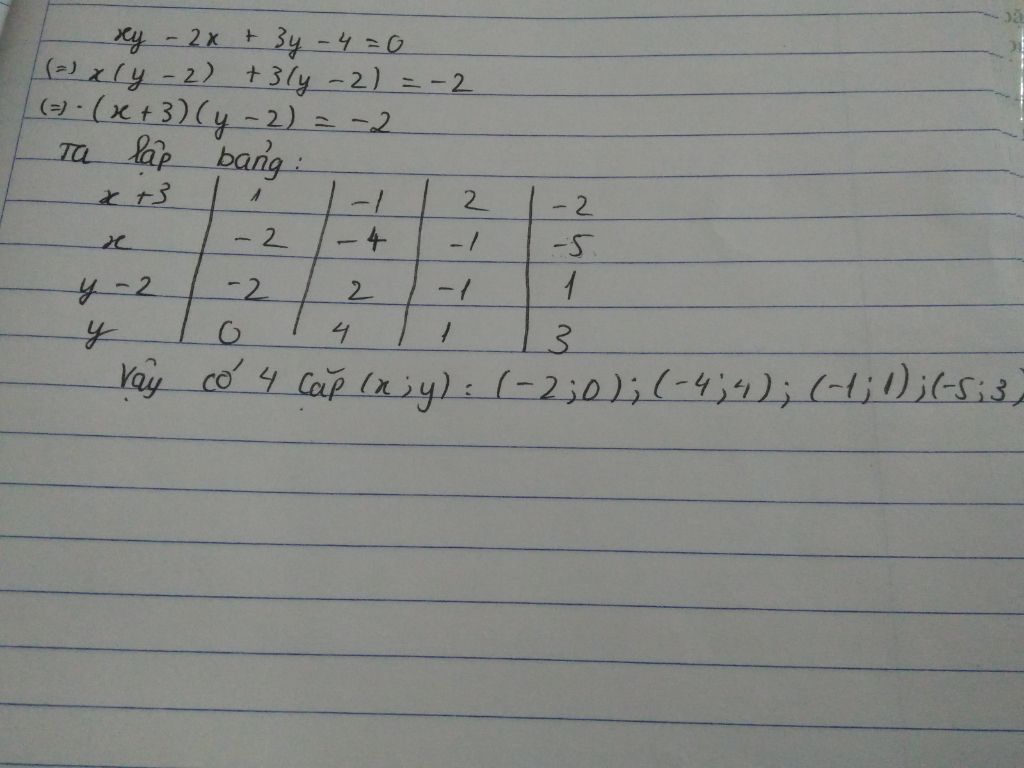 xy - 2x + 3y - 4 = 0
(=) x(y - 2) + 3(y - 2) = -2
(=) (x + 3)(y - 2) = -2
Ta lập bảng:
x + 3 | 1 | -1 | 2 | -2
x | -2 | -4 | -1 | -5
y - 2 | -2 | 2 | -1 | 1
y | 0 | 4 | 1 | 3
Vậy có 4 cặp (x;y): (-2;0); (-4;4); (-1;1); (-5;3)